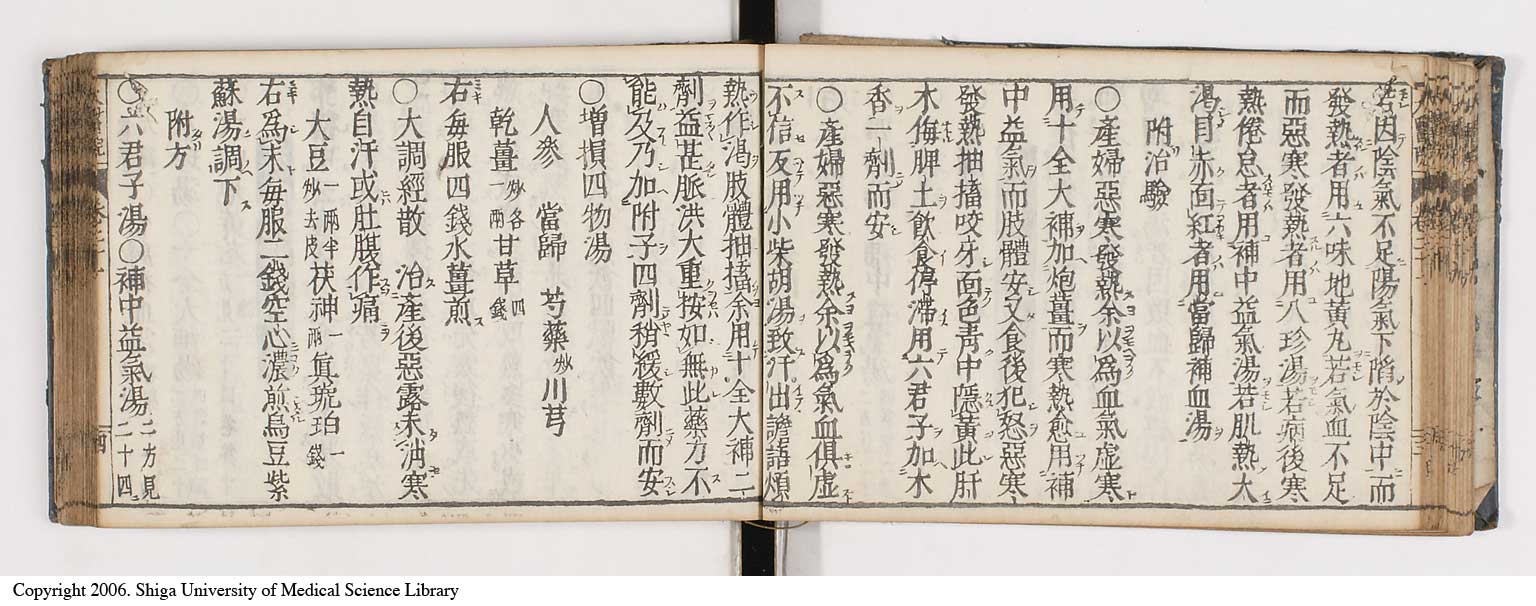 若因陰氣不足陽氣下陷於陰中而
發熱者用六味地黄丸若氣血不足
而惡寒發熱者用八珍湯若病後寒
熱倦怠者用補中益氣湯若肌熱大
渇目赤面紅者用當歸補血湯
附治驗
○産婦惡寒發熱余以爲氣血虚寒
用十全大補加炮薑而寒熱愈用補
中益氣而肢體安又食後犯怒惡寒
發熱抽搐咬牙面色青中隱黄此肝
木侮脾土飲食停滯用六君子加木
香一劑而安
○産婦惡寒發熱余以爲氣血俱虚
不信反用小柴胡湯致汗出譫語煩
熱作渇肢體抽搐余用十全大補二
劑益甚脈洪大重按如無此藥力不
能及乃加附子四劑稍緩數劑而安
○増損四物湯
人參　當歸　芍藥炒川芎
乾薑炒各一兩甘草四錢
右毎服四錢水薑煎
○大調經散　治産後惡露未消寒
熱自汗或肚腹作痛
大豆一兩半炒去皮茯神一兩眞琥珀一錢
右爲末毎服二錢空心濃煎烏豆紫
蘇湯調下
附方
○六君子湯○補中益氣湯二方見二十四
Copyright 2006. Shiga University of Medical Science Library